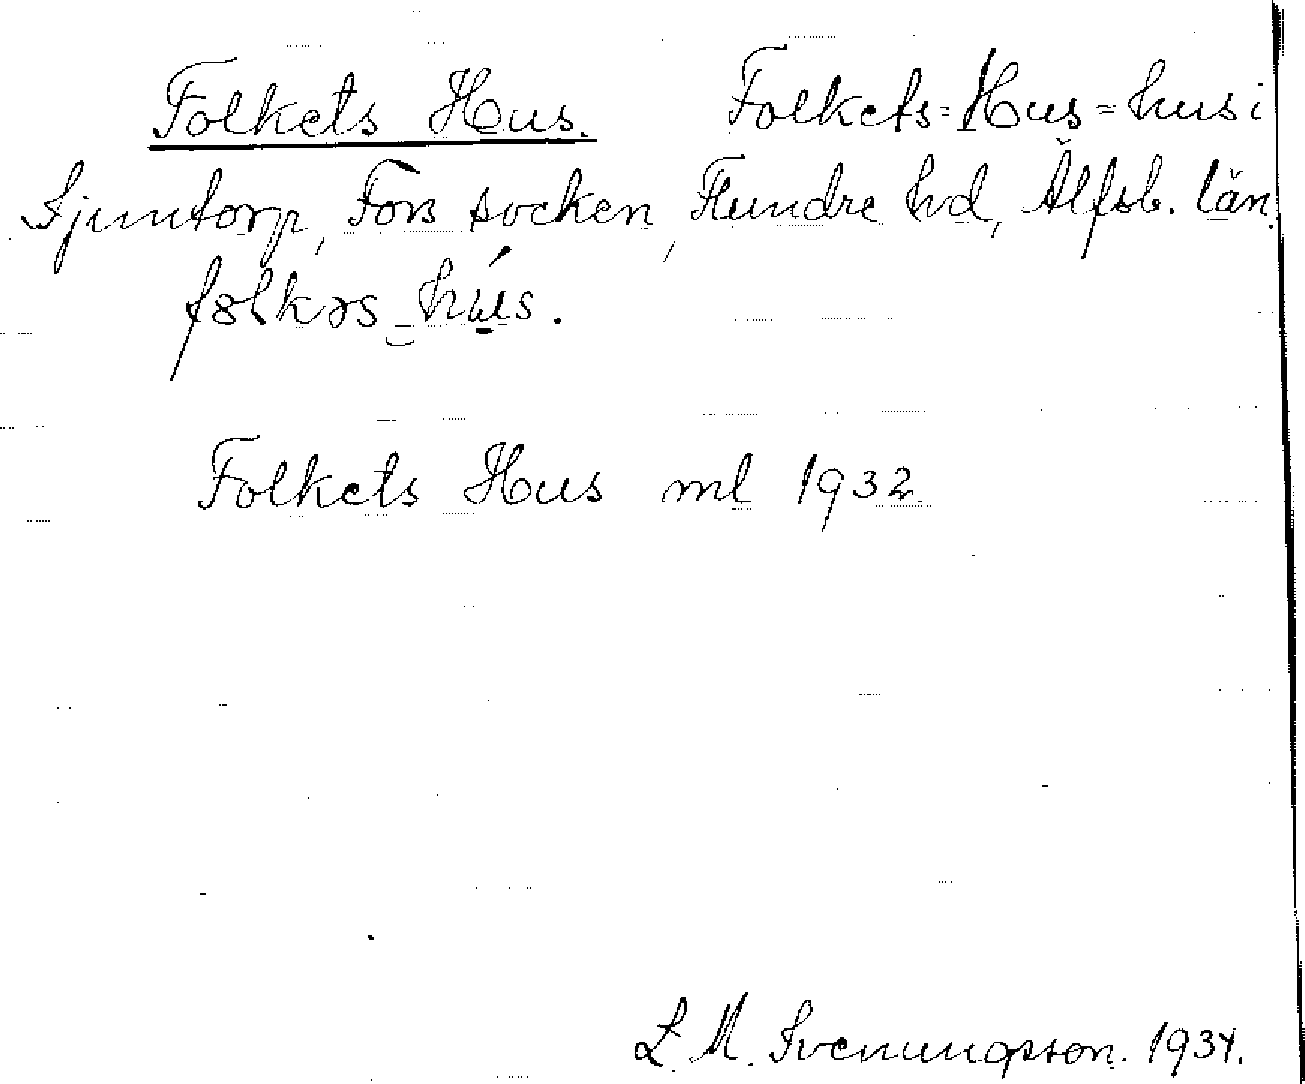 Folkets Hus. Folkets-Hus-hus i
Sjuntorp, Fors socken, Flundre hd, Älfsb. län.
fɔlkəs hús.
Folkets Hus ml 1932
L. M. Svenungsson. 1934.